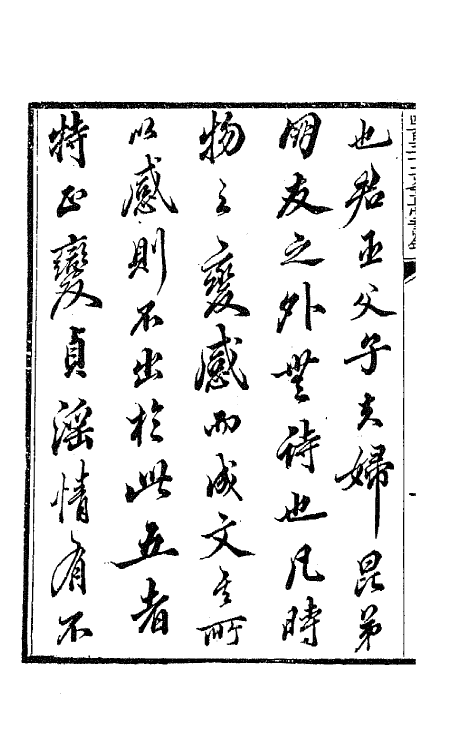 也君臣父子夫婦昆弟
朋友之外無詩也凡時
物之變感而成文其所
以感則不出於此五者
特正變貞淫情有不